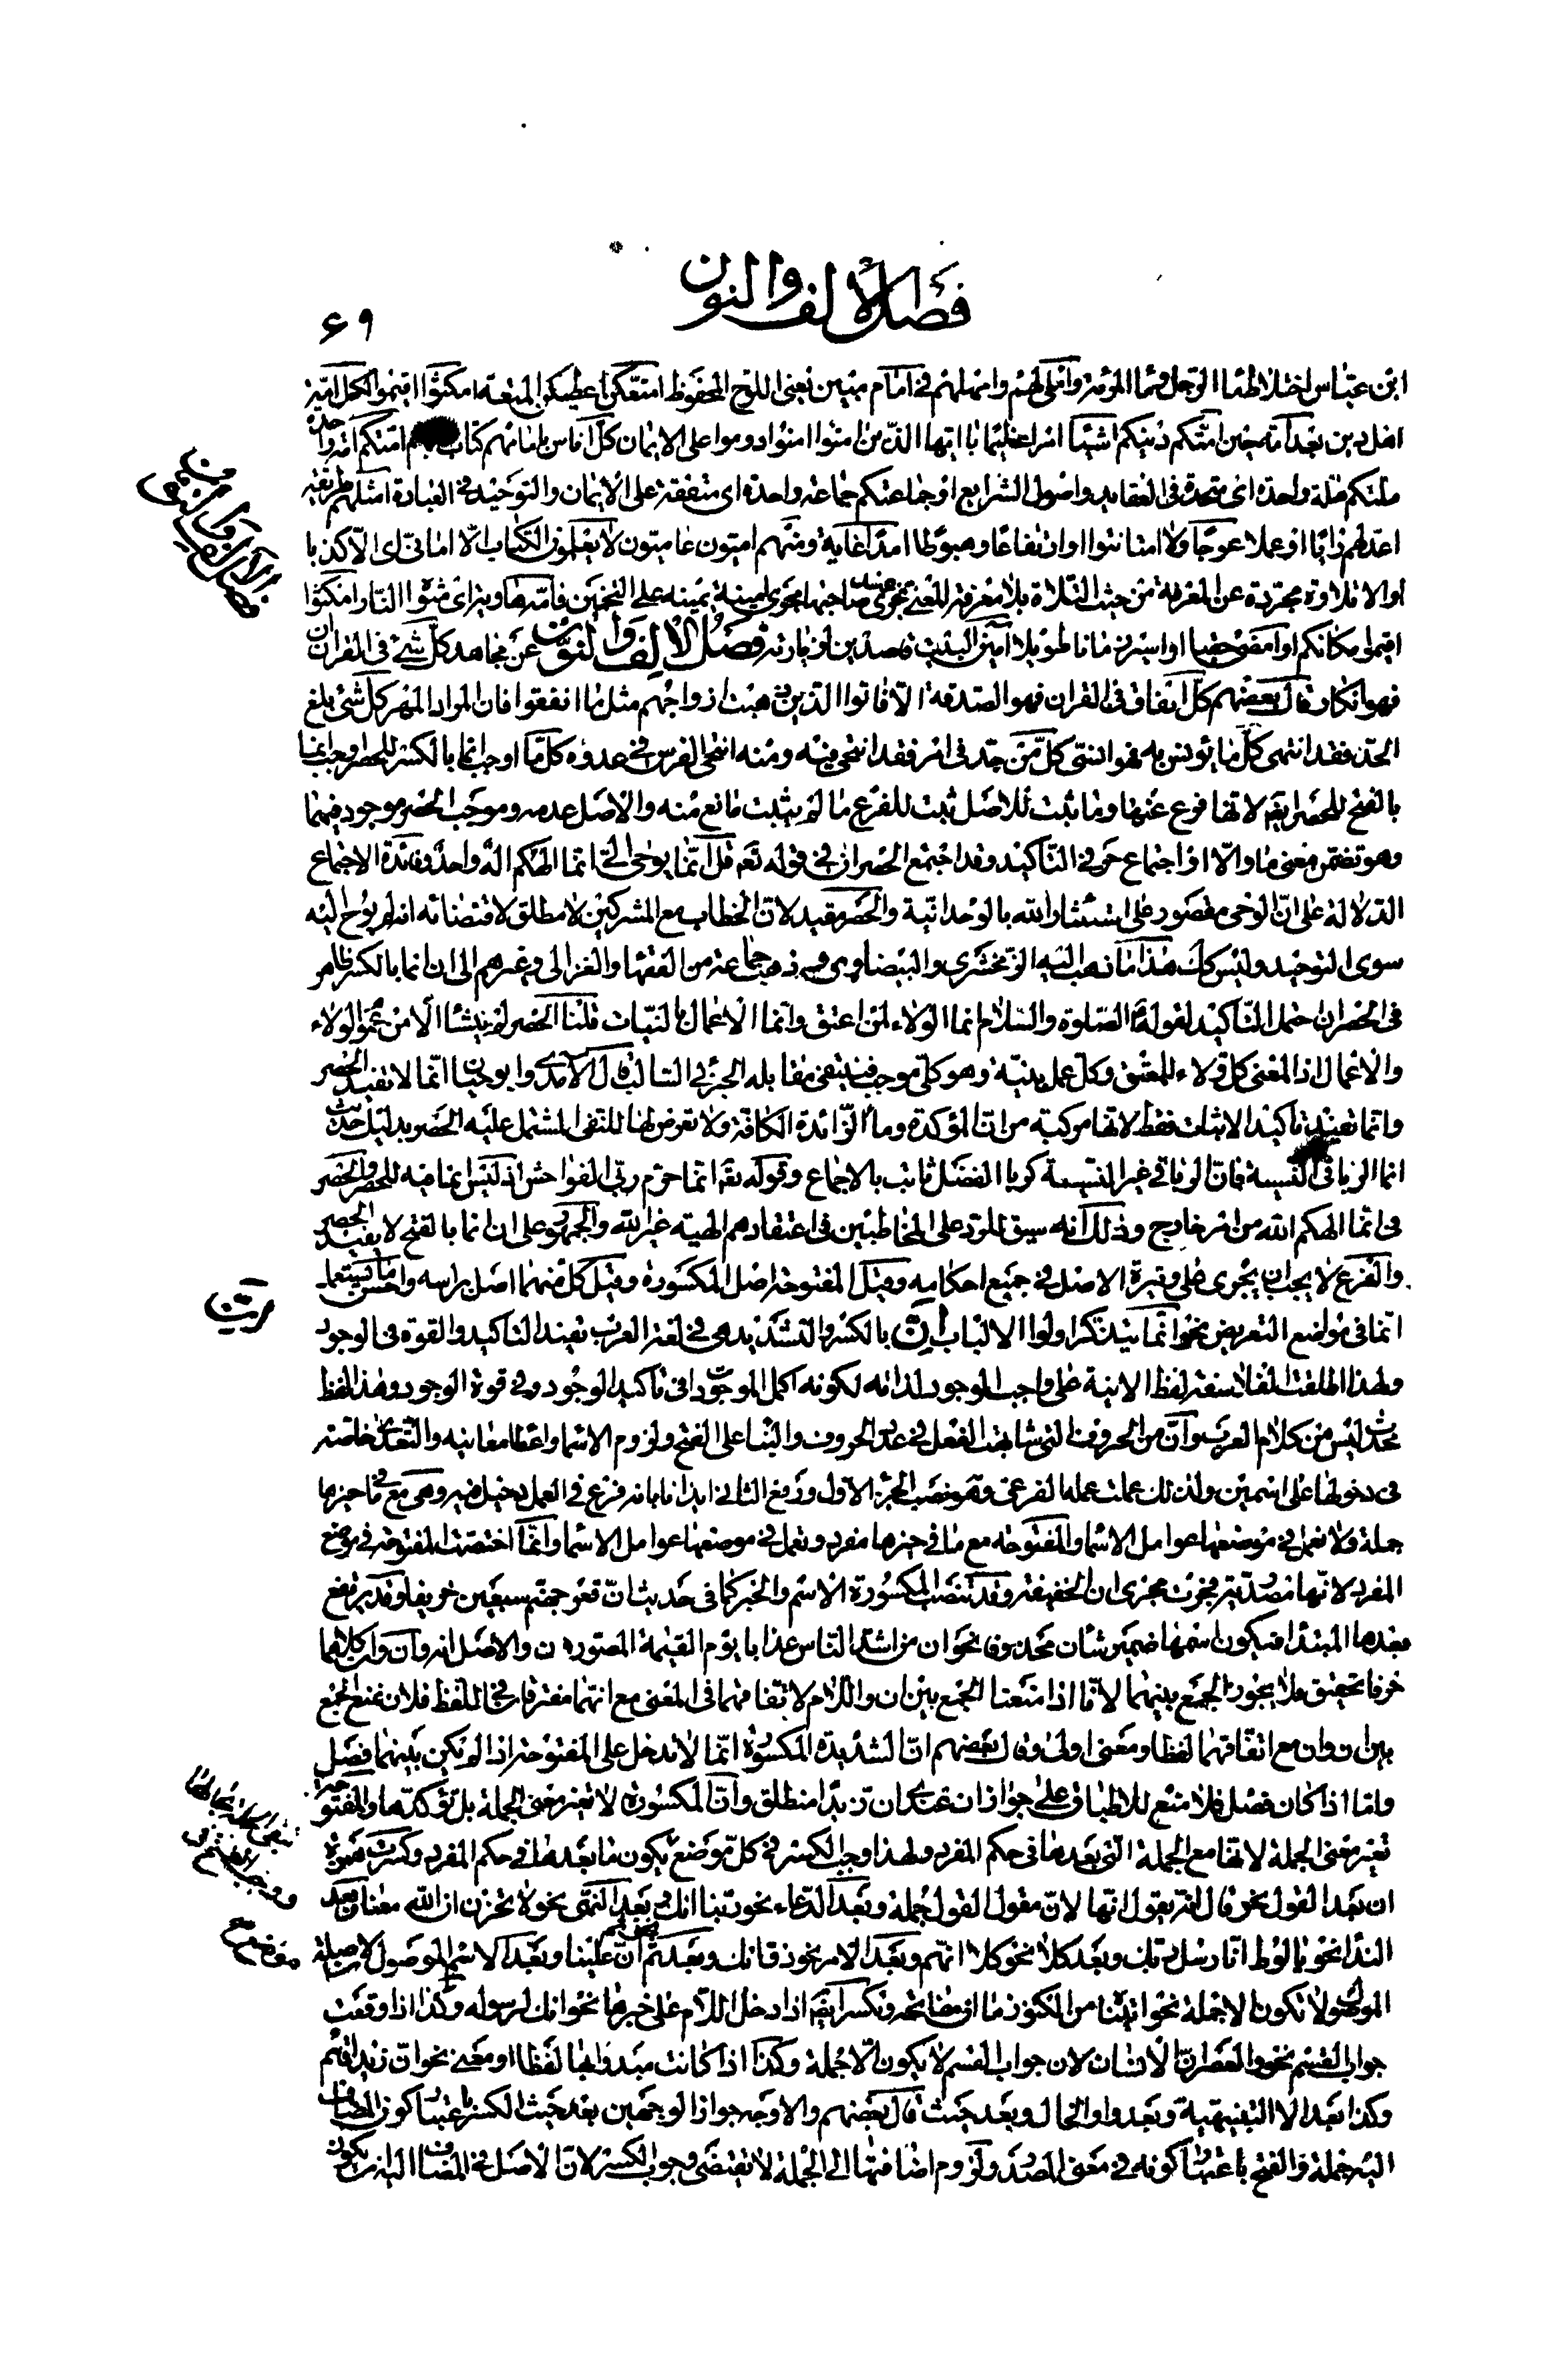 فصل الالف والنون
٦٩
ابن عباس اختلاط ماء الرجل وماء المراة واملي لهم وامهلهم في امام مبين يعني اللوح المحفوظ امتعكن اعطيكن المتعة امكثوا اقيموا لكل امة
اهل دين بعد امة حين امتكم دينكم شيئا امرا عظيما يا ايها الذين امنوا امنوا دوموا على الايمان كل اناس بامامهم كتاب امتكم امة واحدة
ملتكم ملة واحدة اى متحدة في العقايد واصول الشرايع او جماعتكم جماعة واحدة اى متفقة على الايمان والتوحيد في العبادة امثلهم طريقة
اعدلهم رايا او عملا عوجا ولا امتا نتوا او ارتفاعا وهبوطا امدا غاية ومنهم اميون عاميون لا يعلمون الكتاب الا اماني اى الا كذبا
او الا تلاوة مجردة عن المعرفة من حيث التلاوة بلا معرفة المعنى
اقيموا مكانكم او امضي حقبا او اسير زمانا طويلا آمين البيت قاصدين لزيارته فصل الالف والنون عن مجاهد كل شئ في القران ان
فهو انكار قال بعضهم كل انفاق في القران فهو الصدقة الا فاتوا الذين ذهبت ازواجهم مثل ما انفقوا فان المراد المهر كل شئ بلغ
الحد فقد انتهى كل ما يؤنس به فهو انسى كل من جد في امر فقد انتحى فيه ومنه انتحى الفرس في عدوه كل ما اوجب انما بالكسر للحصر اوجب انما
بالفتح للحصر ايضا لانها فرع عنها وما ثبت للاصل ثبت للفرع ما لم يثبت مانع منه والاصل عدمه وموجب الحصر موجود فيهما
وهو تضمن معنى ما والا او اجتماع حرفي التاكيد وقد اجتمع الحصران في قوله تعه قل انما يوحى الي انما الهكم اله واحد وفائدة الاجتماع
الدلالة على ان الوحى مقصور على استئثار الله بالوحدانية والحصر مقيد لان الخطاب مع المشركين لا مطلق لاقتضائه انه لم يوح اليه
سوى التوحيد وليس كك هذا ما ذهب اليه الزمخشري والبيضاوى وذهب جماعة من الفقها والغزالى وغيرهم الى ان انما بالكسر ظاهر
في الحصر ان احتمل التاكيد لقوله الصلوة والسلام انما الولاء لمن اعتق وانما الاعمال بالنيات قلنا الحصر لم ينشا الا من عموم الولاء
والاعمال اذ المعنى كل ولاء للمعتق وكل عمل بنية وهو كلى موجب فينتفى مقابله الجزئي السالب قال الامدي وابو حيان انما لا تفيد الحصر
وانما تفيد تاكيد الاثبات فقط لانها مركبة من ان المؤكدة وما الزائدة الكافة ولا تعرض لها للنفي المشتمل عليه الحصر بدليل حديث
انما الربا في النسيئة فان الربا في غير النسيئة كربا الفضل ثابت بالاجماع وقوله تعه انما حرم ربي الفواحش اذ ليس انما فيه للحصر والحصر
في انما الهكم الله من امر خارج وذلك انه سيق للرد على المخاطبين في اعتقادهم الهية غير الله والجمهور على ان انما بالفتح لا يفيد الحصر
والفرع لا يجب ان يجرى على وتيرة الاصل في جميع احكامه وقيل المفتوحة اصل المكسورة وقيل كل منهما اصل براسه واحسن ما يستعمل
انما في مواضع التعريض نحو انما يتذكر اولوا الالباب ان بالكسر والتشديد هى في لغة العرب تفيد التاكيد والقوة في الوجود
ولهذا اطلقت الفلاسفة لفظ الانية على واجب الوجود لذاته لكونه اكمل الموجودات في تاكيد الوجود وفي قوة الوجود وهذا لفظ
محدث ليس من كلام العرب وان من الحروف التى شابهت الفعل في عدد الحروف والبنا على الفتح ولزوم الاسما واعطا معانيه والتعدي خاصة
في دخولها على اسمين ولذلك عملت عمله الفرعى وهو نصب الجزء الاول ورفع الثانى ايذانا بانه فرع في العمل دخيل فيه وهى مع ما في حيزها
جملة ولا تعمل في موضعها عوامل الاسما والمفتوحة مع ما في حيزها مفرد وتعمل في موضعها عوامل الاسما وانما اختصت المفتوحة في موضع
المفرد لانها مصدرية فجرت مجرى ان الخفيفة وقد تنصب المكسورة الاسم والخبر كما في حديث ان قعر جهنم سبعين خريفا وقد يرتفع
بعدها المبتدا فيكون اسمها ضمير شان محذوفا نحو ان من اشد الناس عذابا يوم القيمة المصورون والاصل انه وان وان كلاهما
حرفا تحقيق فلا يجوز الجمع بينهما لانا اذا منعنا الجمع بين ان واللام لاتفاقهما في المعنى مع انهما مفترقان في اللفظ فلان نمنع الجمع
بين ان وان مع اتفاقهما لفظا ومعنى اولى وقال بعضهم ان المشددة المكسورة انما لا تدخل على المفتوحة اذا لم يكن بينهما فصل
واما اذا كان فصل فلا منع للاطباق على جواز ان عندى ان زيدا منطلق وان المكسورة لا تغير معنى الجملة بل تؤكدها والمفتوحة
تغير معنى الجملة لانها مع الجملة التى بعدها في حكم المفرد ولهذا وجب الكسر في كل موضع يكون ما بعدها في حكم المفرد وكسرت همزة
ان بعد القول نحو قال انه يقول انها لان مقول القول جملة وبعد الدعاء نحو ربنا انك وبعد النهى نحو لا تحزن ان الله معنا وبعد
الندا نحو يا لوط انا رسل ربك وبعد كلا نحو كلا انهم وبعد الامر نحو ذق انك وبعد ثم نحو ثم ان علينا وبعد الاسم الموصول لان صلة
الموصول لا تكون الا جملة نحو اتيناه من الكنوز ما ان مفاتحه وتكسر ايضا اذا دخل اللام على خبرها نحو انك لرسوله وكذا اذا وقعت
جواب القسم نحو والعصر ان الانسان لان جواب القسم لا يكون الا جملة وكذا اذا كانت مبدوا بها لفظا او معنى نحو ان زيدا قائم
وكذا بعد الا التنبيهية وبعد واو الحال وبعد حيث قال بعضهم والاوجه جواز الوجهين بعد حيث الكسر باعتبار كون المضاف
اليه جملة والفتح باعتبار كونه في معنى المصدر ولزوم اضافتها الى الجملة لا تقتضى وجوب الكسر لان الاصل في المضاف اليه ان يكون